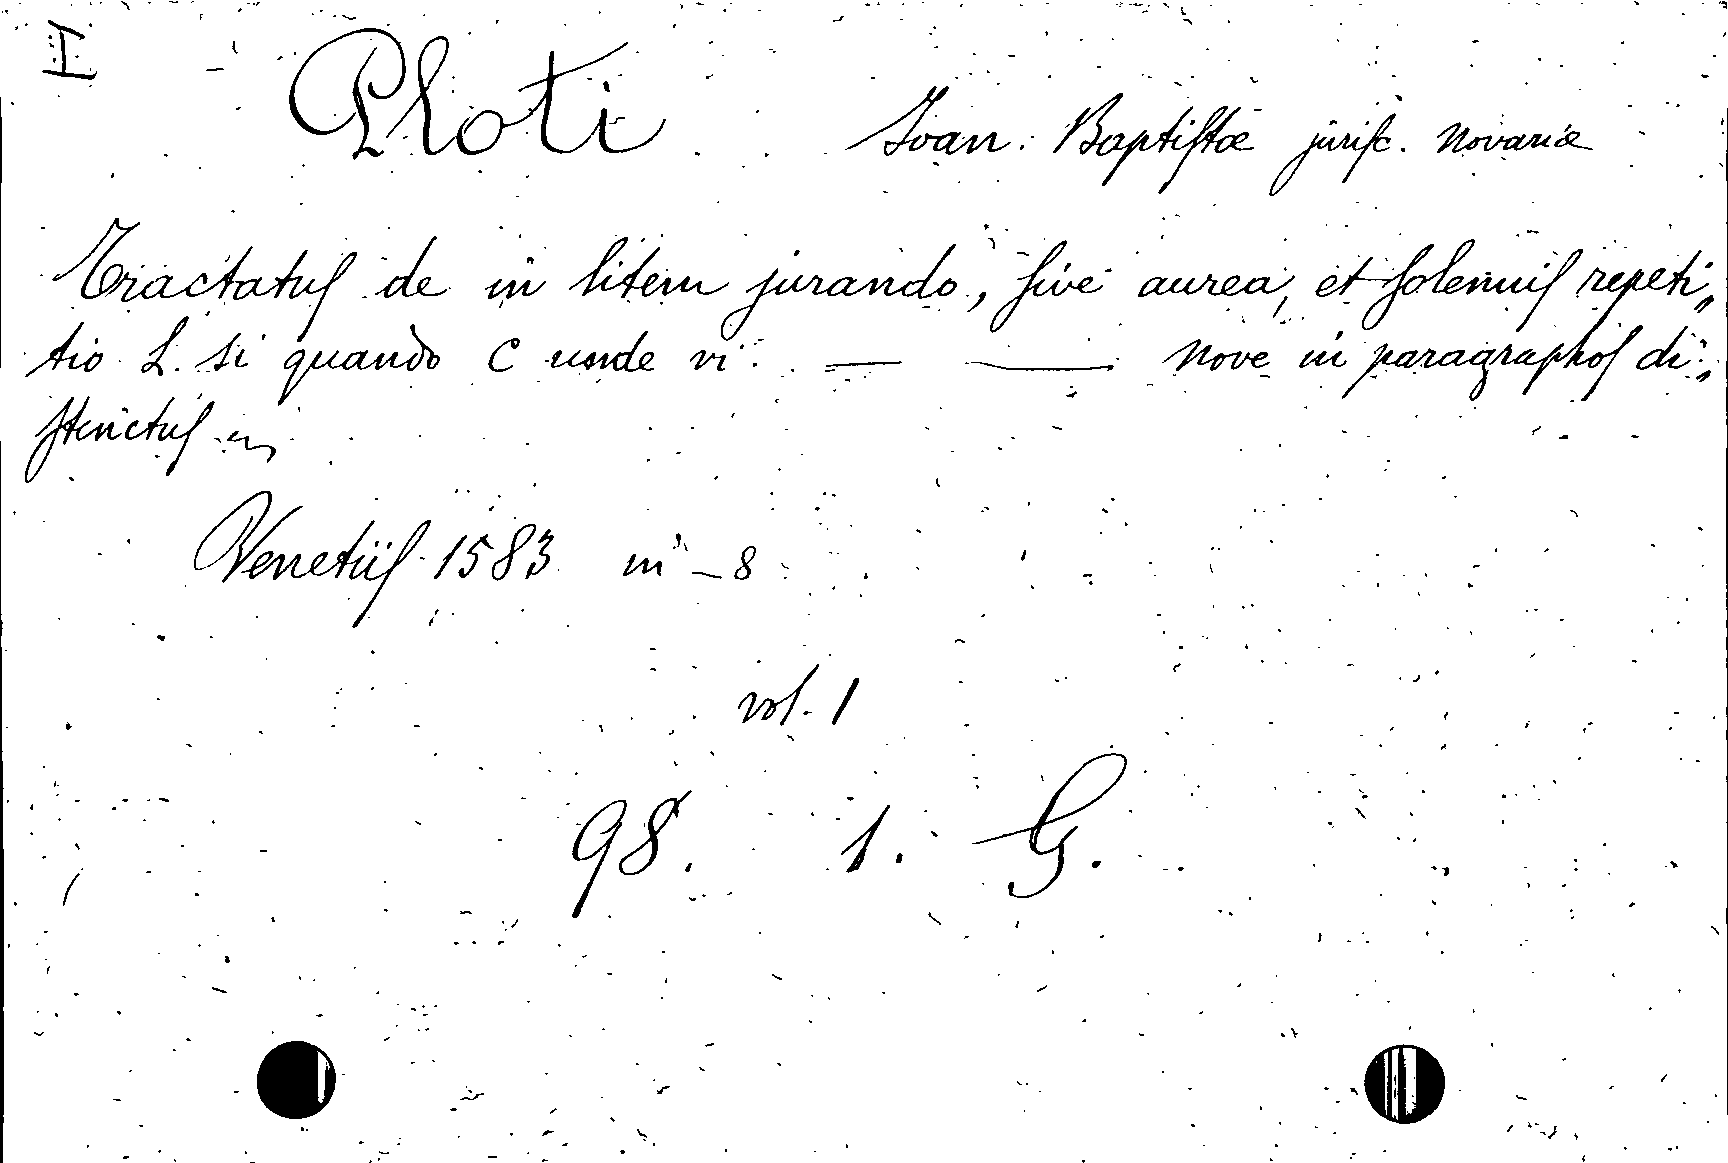 I
Ploti Ioan. Baptiſtæ juriſc. Novariæ
Tractatuſ de in litem jurando, ſive aurea, et ſolemniſ repeti„
tio L. si quando C unde vi. — — Nove in paragraphoſ di„
ſtinctuſ
Venetiiſ 1583 in - 8
vol. 1
98. 1. G.